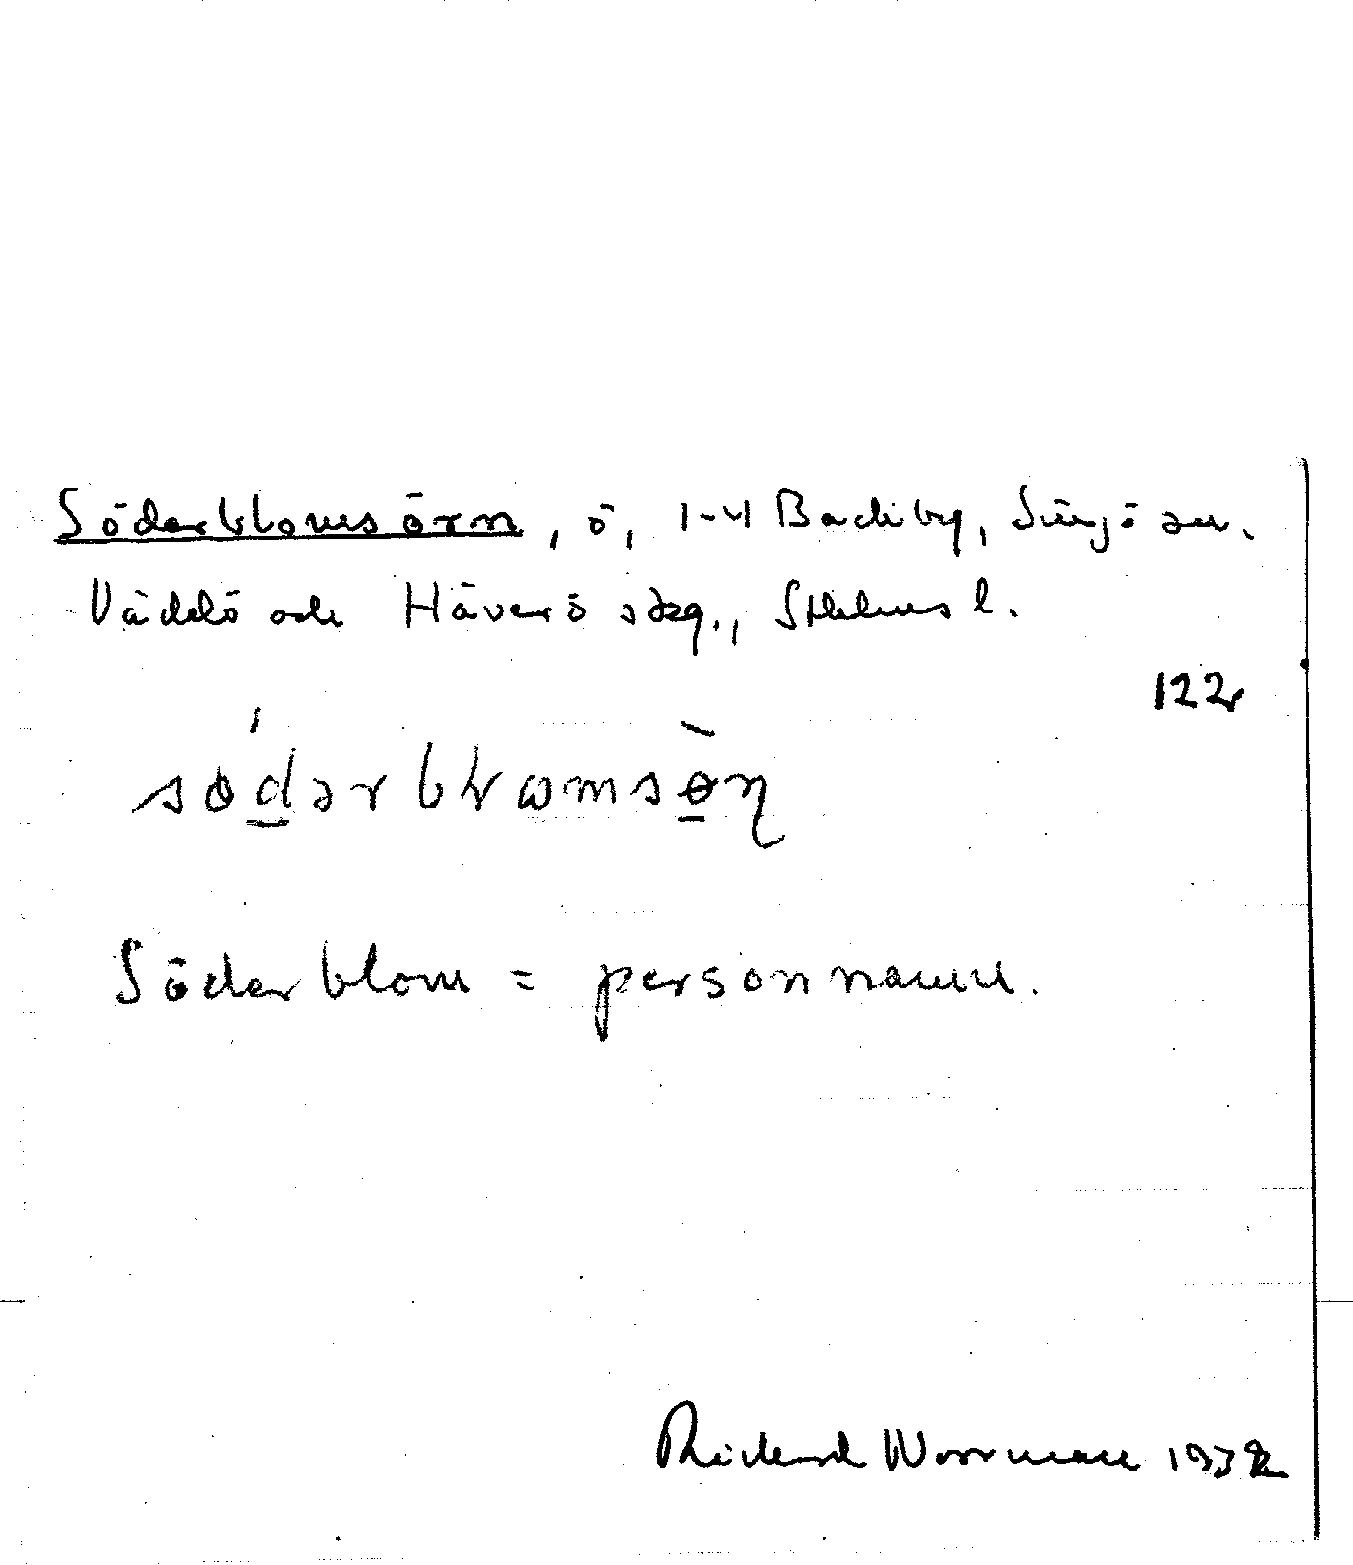 Söderblomsörn, ö, 1-4 Backby, Singö sn.
Väddö och Häverö skg., Sthlms l.
122
södərblωmsòn̥
Söderblom = personnamn.
Richard Worrman 1932